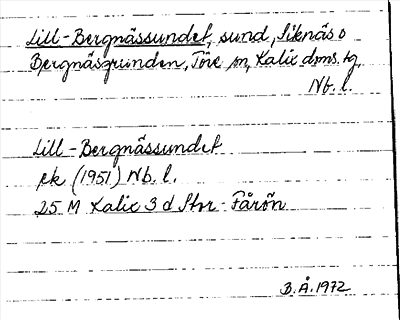 Lill-Bergnässundet, sund, Siknäs o
Bergnäsgrunden, Töre sn, Kalix doms. tg,
Nb. l.
Lill-Bergnässundet
ek (1951) Nb. l.
25 M Kalix 3 d Stor-Fårön
B.Å. 1972